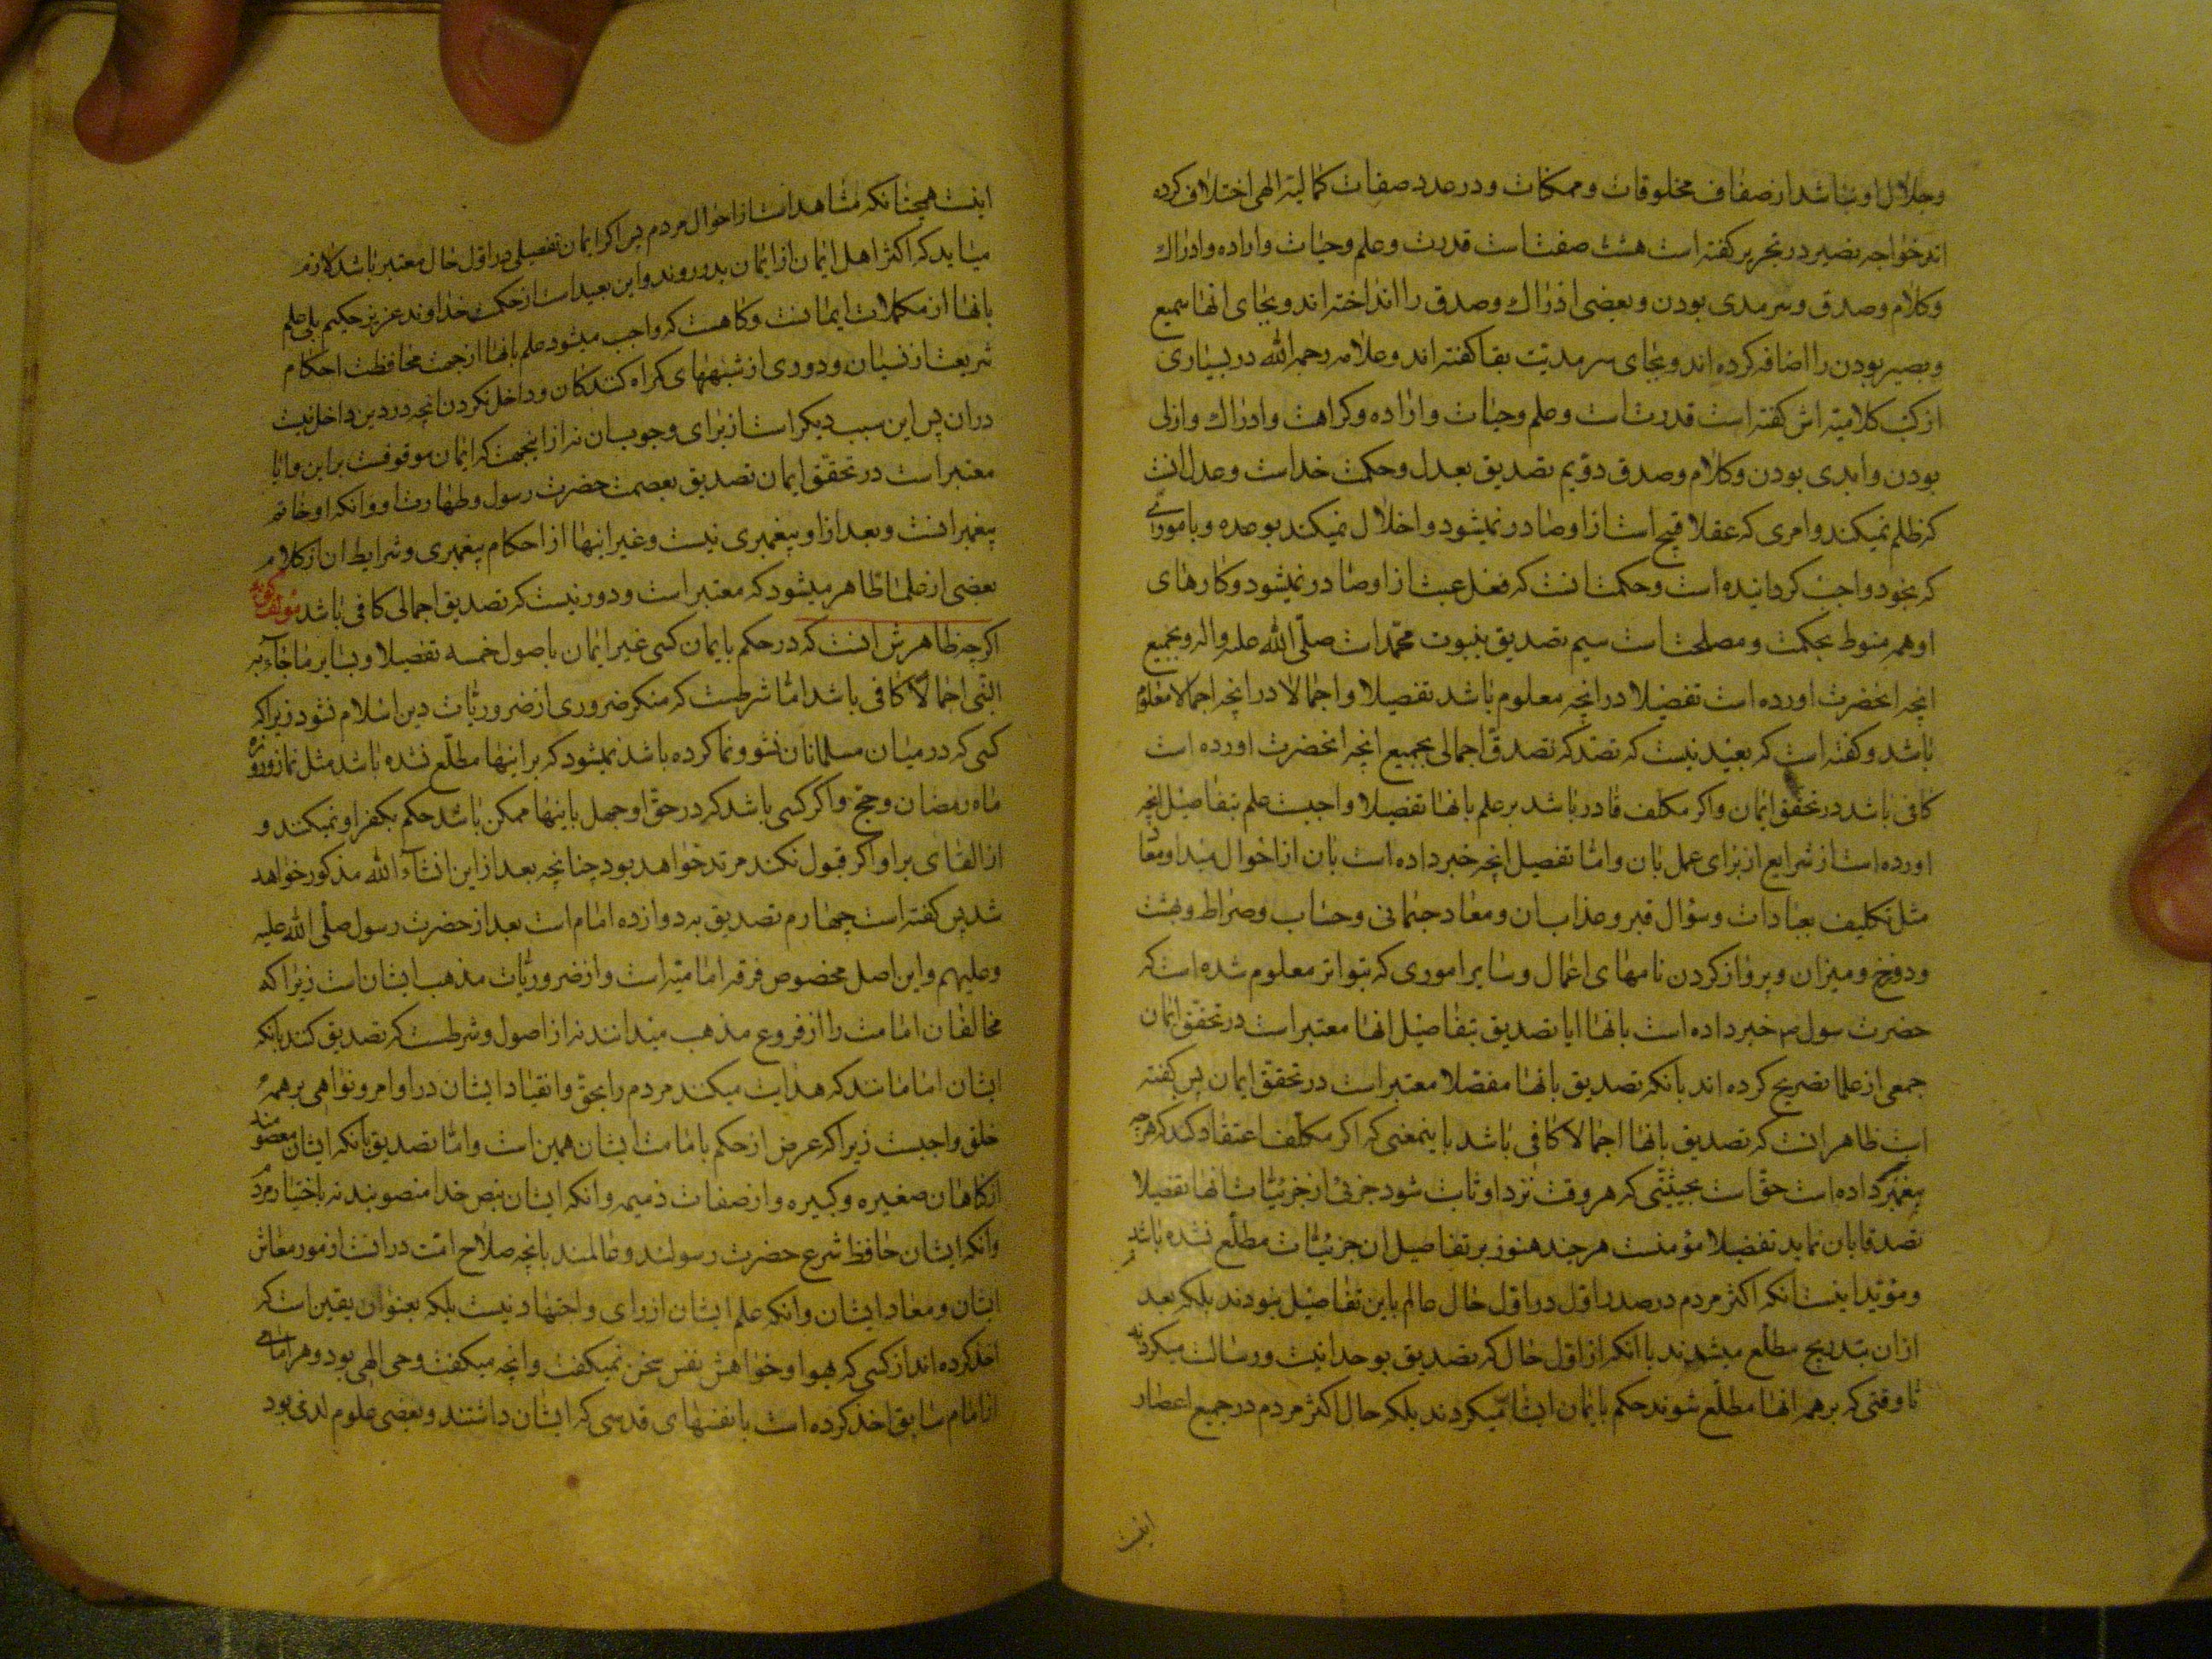 وجلال او نباشد از صفات مخلوقات وممکنات و در عدد صفات کمالیه الهی اختلاف کرده
اند خواجه نصیر در تجرید کفته است هشت صفتست قدرت و علم وحیات واراده وادراک
وکلام وصدق و سرمدی بودن و بعضی ادراک وصدق را انداخته اند و بجای انها سمیع
وبصیر بودن را اضافه کرده اند و بجای سرمدیت بقا کفته اند وعلامه رحمه الله در بسیاری
از کتب کلامیه اش کفته است قدرتست وعلم وحیات و اراده وکراهت وادراک وازلی
بودن وابدی بودن وکلام وصدق دویم تصدیق بعدل وحکمت خداست وعدل انست
که ظلم نمیکند وامری که عقلا قبیح است از او صادر نمیشود و اخلال نمیکند بوعده و بامورای
که بخود واجب کردانیده است و حکمت انست که فعل عبث از او صادر نمیشود وکارهای
او همه منوط بحکمت ومصلحت است سیم تصدیق بنبوت محمد است صلی الله علیه واله وبجمیع
انچه انحضرت اورده است تفضیلا در انچه معلوم باشد تفصیلا واجمالا در انچه اجمالا معلوم
باشد وکفته است که بعید نیست که تصدیق اجمالی بجمیع انچه انحضرت اورده است
کافی باشد در تحقق ایمان واکر مکلف قادر باشد بر علم بانها تفصیلا واجبست علم بتفاصیل انچه
اورده است از شرایع از برای عمل بان واما تفصیل انچه خبر داده است بان از احوال مبدا ومعاد
مثل تکلیف بعبادات و سؤال قبر وعذاب ان ومعاد جسمانی وحساب وصراط وبهشت
ودوزخ ومیزان وپرواز کردن نامهای اعمال وسایر اموری که بتواتر معلوم شده است که
حضرت رسول ص خبر داده است بانها ایا تصدیق بتفاصیل انها معتبر است در تحقق ایمان
جمعی از علما تصریح کرده اند بانکه تصدیق بانها مفصلا معتبر است در تحقق ایمان پس کفته
است ظاهر انست که تصدیق بانها اجمالا کافی باشد باینمعنی که اکر مکلف اعتقاد کند که هر چه
پیغمبر خبر داده است حق است بحیثیتی که هر وقت نزد او ثابت شود جزئی از جزئیات انها تفصیلا
تصدیق بان نماید تفصیلا مؤمنست هر چند هنوز بر تفاصیل ان جزئیات مطلع نشده باشد
ومؤید اینست انکه اکثر مردم در صدر اول در اول حال عالم باین تفاصیل نبودند بلکه بعد
از ان بتدریج مطلع میشدند با انکه از اول حال که تصدیق بوحدانیت ورسالت میکردند
تا وقتی که بر همه انها مطلع شوند حکم بایمان ایشان میکردند بلکه حال اکثر مردم در جمیع اعصار
اینست
اینست همچنانکه مشاهد است از احوال مردم پس اکر ایمان تفصیلی در اول حال معتبر باشد لازم
میاید که اکثر اهل ایمان از ایمان بدر روند واین بعید است از حکمت خداوند عزیز حکیم بلی علم
بانها از مکملات ایمانست وکاهست که واجب میشود علم بانها از جهت محافظت احکام
شریعت از نسیان ودوری از شبههای کمراه کنندکان وداخل نکردن انچه در دین داخل نیست
در ان پس این سبب دیکر است از برای وجوب ان نه از اینجهت که ایمان موقوفست بر این وایا
معتبر است در تحقق ایمان تصدیق بعصمت حضرت رسول وطهارت او وانکه او خاتم
پیغمبرانست وبعد از او پیغمبری نیست وغیر اینها از احکام پیغمبری وشرایط ان از کلام
بعضی از علما ظاهر میشود که معتبر است ودور نیست که تصدیق اجمالی کافی باشد مؤلف کوید
اکرچه ظاهرش انست که در حکم بایمان کسی غیر ایمان باصول خمسه تفصیلا وبسایر ما جاء به
النبی اجمالا کافی باشد اما شرطست که منکر ضروری از ضروریات دین اسلام نشود زیرا که
کسی که در میان مسلمانان نشو ونما کرده باشد نمیشود که بر اینها مطلع نشده باشد مثل نماز وروزه
ماه رمضان وحج واکر کسی باشد که در حق او جهل باینها ممکن باشد حکم بکفر او نمیکند و
از القای بر او اکر قبول نکند مرتد خواهد بود چنانچه بعد از این انشاء الله مذکور خواهد
شد پس کفته است چهارم تصدیق به دوازده امام است بعد از حضرت رسول صلی الله علیه
وعلیهم واین اصل مخصوص فرقه امامیه است واز ضروریات مذهب ایشان است زیرا که
مخالفان امامت را از فروع مذهب میدانند نه از اصول وشرطست که تصدیق کند بانکه
ایشان امامانند که هدایت میکند مردم را بحق وانقیاد ایشان در اوامر ونواهی بر همه
خلق واجبست زیرا که غرض از حکم بامامت ایشان همین است واما تصدیق بانکه ایشان معصومند
از کاهان صغیره وکبیره واز صفات ذمیمه وانکه ایشان بنص خدا منصوبند نه باختیار مردم
وانکه ایشان حافظ شرع حضرت رسولند وعالمند بانچه صلاح امت در انست از امور معاش
ایشان ومعاد ایشان وانکه علم ایشان از رای واجتهاد نیست بلکه بعنوان یقین است که
اخذ کرده اند از کسی که بهوا وخواهش نفس سخن نمیکفت وانچه میکفت وحی الهی بود وهر امامی
از امام سابق اخذ کرده است با نفسهای قدسی که ایشان داشتند وبعضی علوم لدنی بود